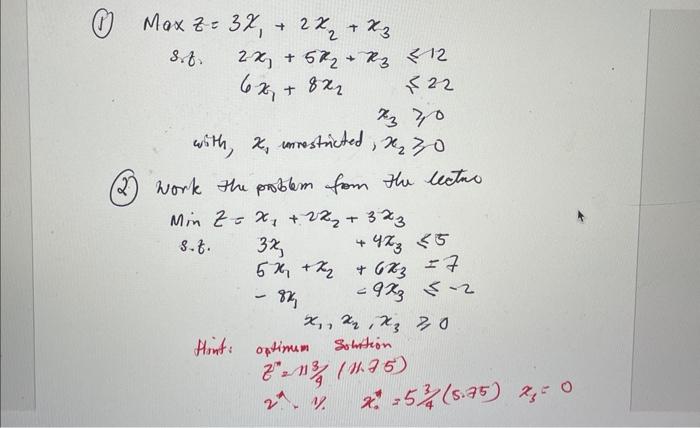 ① Max Z = 3x₁ + 2x₂ + x₃
s.t. 2x₁ + 5x₂ + x₃ ≤ 12
6x₁ + 8x₂ ≤ 22
x₃ ≥ 0
with, x₁ unrestricted, x₂ ≥ 0
② Work the problem from the lectur
Min Z = x₁ + 2x₂ + 3x₃
s.t. 3x₁ + 4x₃ ≤ 5
5x₁ + x₂ + 6x₃ = 7
- 8x₁ - 9x₃ ≤ -2
x₁, x₂, x₃ ≥ 0
Hint: optimum Solution
Z* = 11 3/4 (11.75)
= 5 3/4 (5.75) x₃ = 0